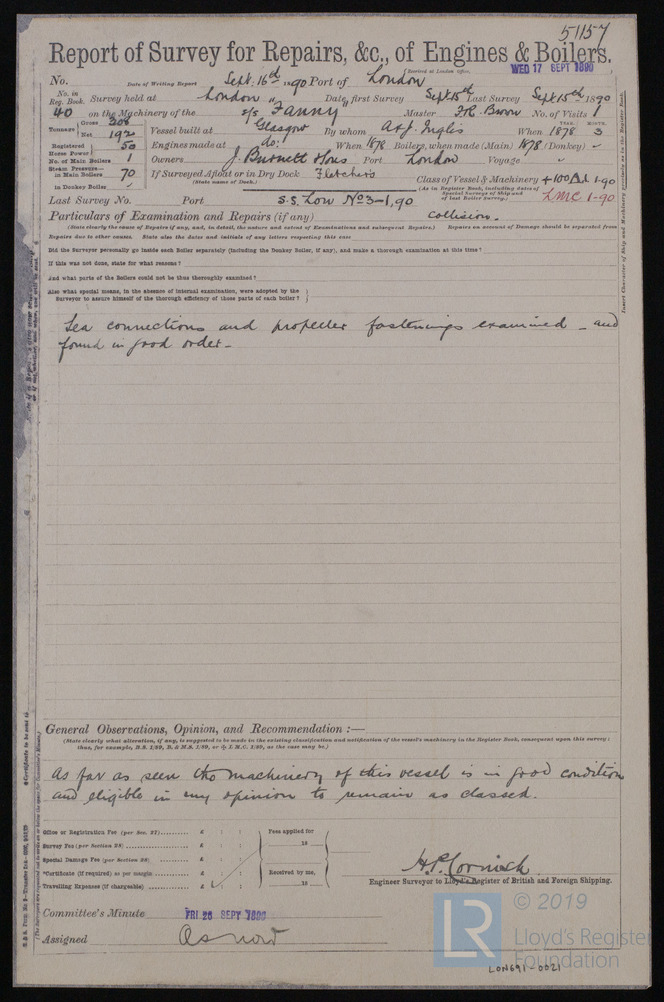 51157
Report of Survey for Repairs, &c., of Engines & Boilers.
Received at London Office, WED 17 SEPT 1890
No. Date of Writing Report Sept. 16th 1890 Port of London
No. in Reg. Book. Survey held at London Date, first Survey Sept 15th Last Survey Sept 15th 1890
40 on the Machinery of the s/s "Fanny" Master No. of Visits 1
Tonnage Gross 308 Net 192 Vessel built at Glasgow By whom A & J. Inglis When YEAR. 1878 MONTH. 3
Registered Horse Power 50 Engines made at do: When 1878 Boilers, when made (Main) 1878 (Donkey) –
No. of Main Boilers 1 Owners J. Burnett & Sons Port London Voyage –
Steam Pressure— in Main Boilers 70 If Surveyed Afloat or in Dry Dock Fletchers
(State name of Dock.)
in Donkey Boiler – Class of Vessel & Machinery +100A1 1.90
(As in Register Book, including dates of Special Surveys of Ship and of last Boiler Survey.) LMC 1-90
Last Survey No. Port S.S. Lon No 3-1,90
Particulars of Examination and Repairs (if any) Collision.
(State clearly the cause of Repairs if any, and, in detail, the nature and extent of Examinations and subsequent Repairs.) Repairs on account of Damage should be separated from
Repairs due to other causes. State also the dates and initials of any letters respecting this case
Did the Surveyor personally go inside each Boiler separately (including the Donkey Boiler, if any), and make a thorough examination at this time?
If this was not done, state for what reasons?
And what parts of the Boilers could not be thus thoroughly examined?
Also what special means, in the absence of internal examination, were adopted by the
Surveyor to assure himself of the thorough efficiency of those parts of each boiler?
Sea connections and propeller fastenings examined – and
found in good order –
General Observations, Opinion, and Recommendation :—
(State clearly what alteration, if any, is suggested to be made in the existing classification and notification of the vessel's machinery in the Register Book, consequent upon this survey;
thus, for example, B.S. 1/89, B. & M.S. 1/89, or L.M.C. 1/89, as the case may be.)
As far as seen the machinery of this vessel is in good condition
and eligible in my opinion to remain as classed.
Office or Registration Fee (per Sec. 27) £ : : Fees applied for
Survey Fee (per Section 28) £ : : 18
Special Damage Fee (per Section 28) £ : :
*Certificate (if required) as per margin £ : : Received by me,
Travelling Expenses (if chargeable) £ : : 18
H.P. Cornish
Engineer Surveyor to Lloyd's Register of British and Foreign Shipping.
Committee's Minute FRI 26 SEPT 1890
Assigned As now
LR © 2019
Lloyd's Register
Foundation
LON691-0021